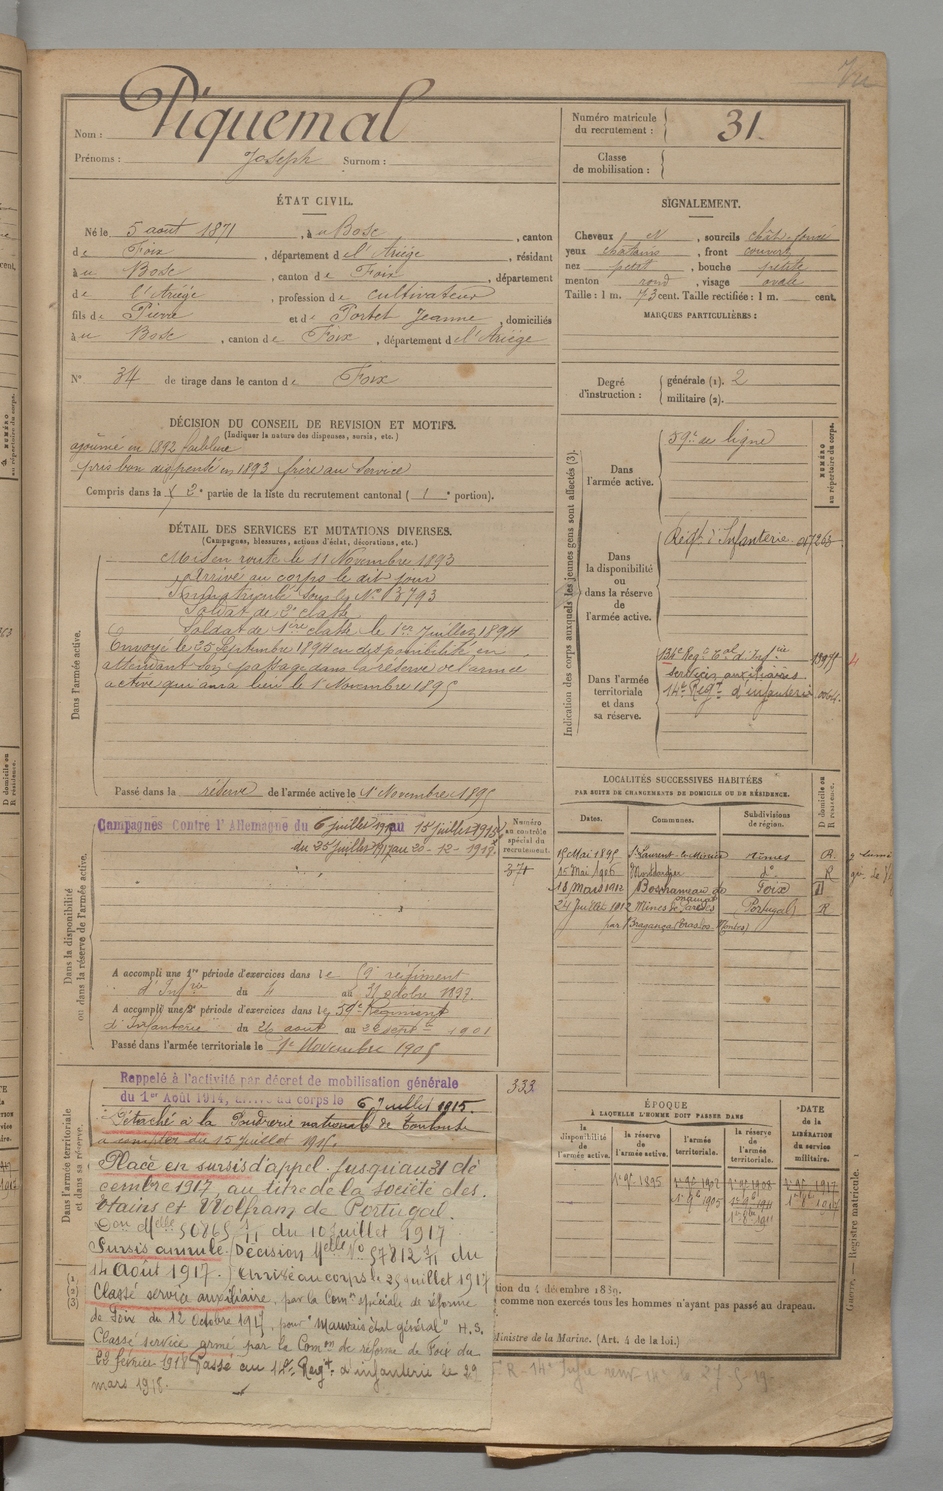 Nom : Piquemal
Prénoms : Joseph Surnom :
Numéro matricule du recrutement : 31.
Classe de mobilisation :
ÉTAT CIVIL.
Né le 5 août 1871, à u Bosc, canton
de Foix, département de l'Ariège, résidant
à u Bosc, canton de Foix, département
de l'Ariège, profession de cultivateur
fils de Pierre et de Portet Jeanne, domiciliés
à u Bosc, canton de Foix, département de l'Ariège
N° 34 de tirage dans le canton de Foix
SIGNALEMENT.
Cheveux N, sourcils chât. foncé
yeux chatains, front couvert
nez petit, bouche petite
menton rond, visage ovale
Taille : 1 m. 73 cent. Taille rectifiée : 1 m. cent.
MARQUES PARTICULIÈRES :
Degré d'instruction : générale (1). 2
militaire (2).
DÉCISION DU CONSEIL DE REVISION ET MOTIFS.
(Indiquer la nature des dispenses, sursis, etc.)
ajourné en 1892 faiblesse
pris bon dispensé en 1893 frère au Service
Compris dans la 2e partie de la liste du recrutement cantonal ( 1e portion).
DÉTAIL DES SERVICES ET MUTATIONS DIVERSES.
(Campagnes, blessures, actions d'éclat, décorations, etc.)
Dans l'armée active.
Mis en route le 11 Novembre 1893
Arrivé au corps le dit jour
Immatriculé sous le N°
Soldat de 2e classe
Soldat de 1ère classe le 1er Juillet 1894
Envoyé le 25 Septembre 1894 en disponibilité en
attendant son passage dans la réserve de l'armée
active qui aura lieu le 1er Novembre 1895
Passé dans la réserve de l'armée active le 1er Novembre 1895
Indication des corps auxquels les jeunes gens sont affectés (3).
NUMÉRO au répertoire du corps.
Dans l'armée active.
59e de ligne
Dans la disponibilité ou dans la réserve de l'armée active.
Régt d'Infanterie
Dans l'armée territoriale et dans sa réserve.
134e Régt Tal d'Infie
services auxiliaires
14e Régt d'infanterie
LOCALITÉS SUCCESSIVES HABITÉES
PAR SUITE DE CHANGEMENTS DE DOMICILE OU DE RÉSIDENCE.
Dates. Communes. Subdivisions de région. D domicile ou R résidence.
15 Mai 1895 St Laurent-le-Minier Nîmes R.
15 Mai 1906 d° R
18 Mars 1912 Bosc Foix D
24 Juillet 1912 Mines de Portugal R
par Bragança (Traslos Montes)
Dans la disponibilité ou dans la réserve de l'armée active.
Numéro au contrôle spécial du recrutement.
Campagnes Contre l'Allemagne du 6 juillet 1915 au 15 juillet 1915
du 25 Juillet 1917 au 20-12-1918.
A accompli une 1re période d'exercices dans le 59 régiment
d'Infrie du 4 au 31 octobre 1897
A accompli une 2e période d'exercices dans le 59e Régiment
d'Infanterie du 26 août au 22 septbre 1901
Passé dans l'armée territoriale le 1er Novembre 1905
Dans l'armée territoriale et dans sa réserve.
332
Rappelé à l'activité par décret de mobilisation générale
du 1er Août 1914, arrivé au corps le 6 Juillet 1915.
Détaché à la Poudrerie nationale de Toulouse
à compter du 15 juillet 1915.
Placé en sursis d'appel jusqu'au 31 dé
cembre 1917, au titre de la Société des
Etains et Wolfram de Portugal.
Don Melle 50865 5/11 du 10 juillet 1917
Sursis annulé. Décision Melle N° 57812 5/11 du
14 Août 1917. Arrivé au corps le 25 juillet 1917
Classé service auxiliaire, par la Comon spéciale de réforme
de Foix du 12 Octobre 1917, pour "Mauvais état général" H.S.
Classé service armé par la Comon de réforme de Foix du
22 février 1918. Passé au 14e Régt d'infanterie le 29
mars 1918.
ÉPOQUE
À LAQUELLE L'HOMME DOIT PASSER DANS
la disponibilité de l'armée active. la réserve de l'armée active. l'armée territoriale. la réserve de l'armée territoriale. DATE de la LIBÉRATION du service militaire.
1er 9bre 1895 1er 9bre 1902 1er 9bre 1908 1er 9bre 1917
1er 9bre 1905 1er 9bre 1911
tion du 4 décembre 1889.
comme non exercés tous les hommes n'ayant pas passé au drapeau.
Ministre de la Marine. (Art. 4 de la loi.)
Guerre. — Registre matricule. 1